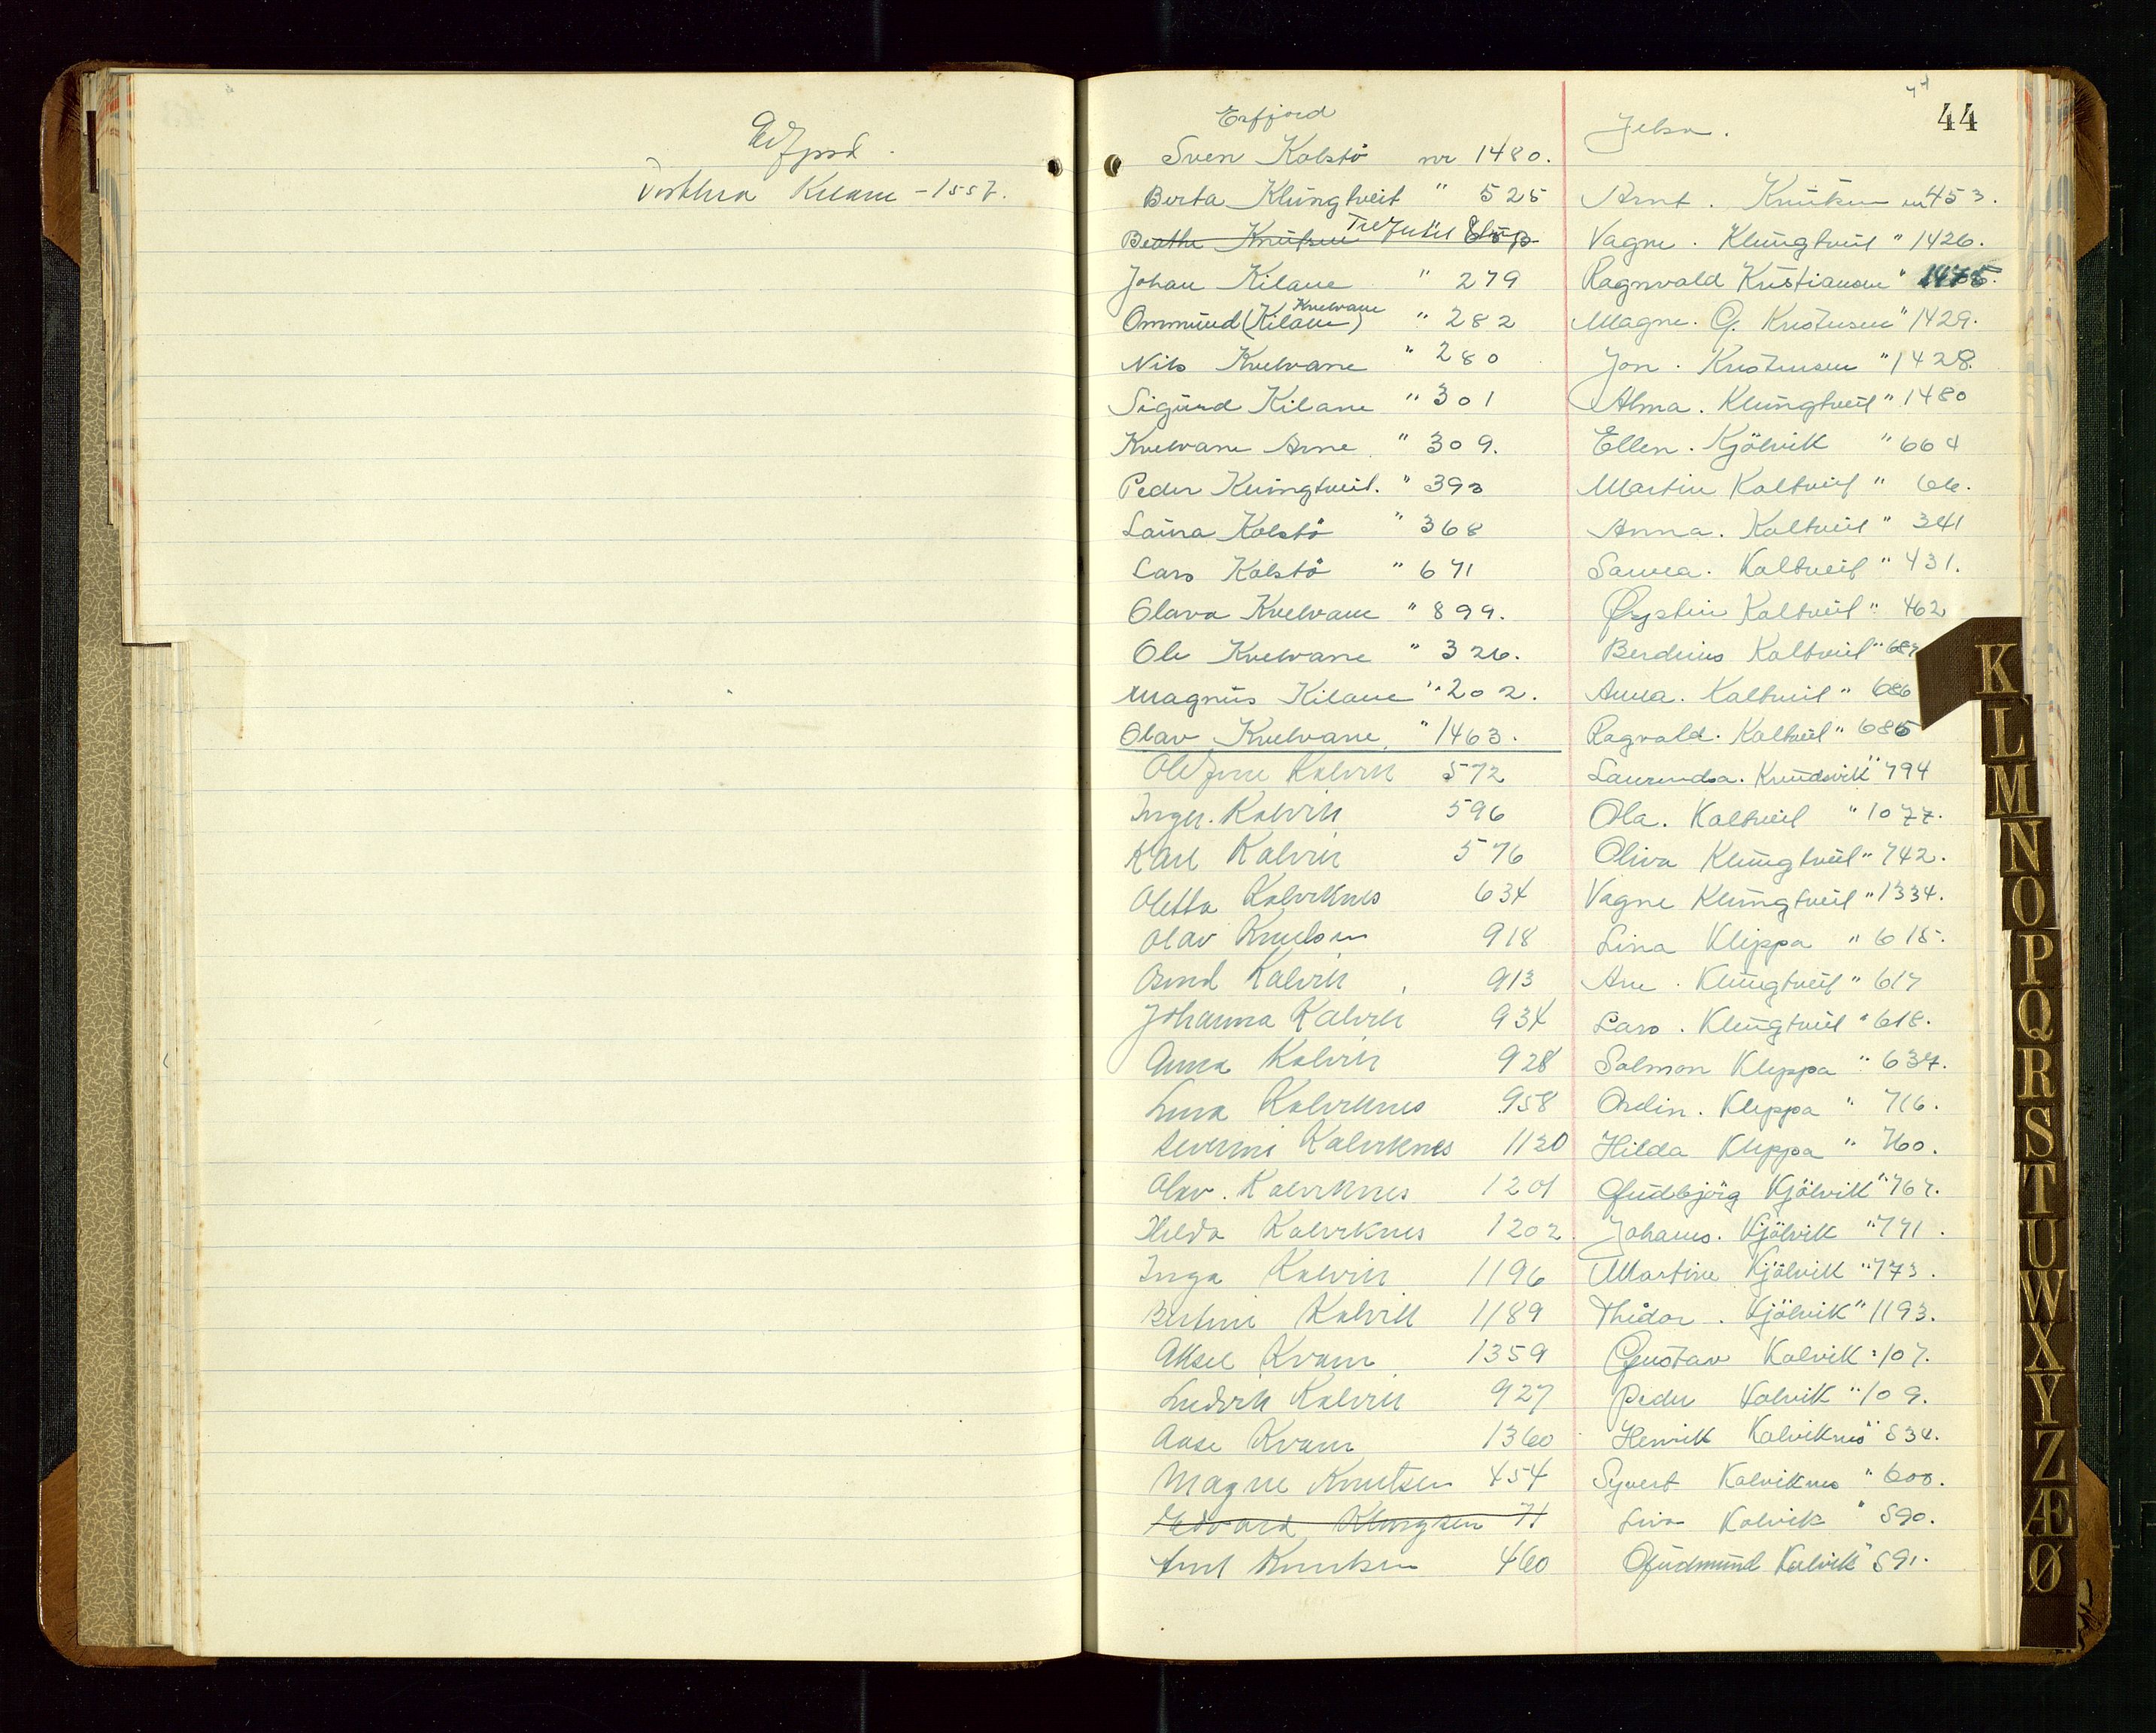 Erfjord
Kilane - 1557.
44
Erfjord
Sven Kolstö nr 1480.
Berta Klungtveit " 525
Beathe Knutsen
Johan Kilane " 279
Ommund (Kilane) Kvelvane " 282
Nils Kvelvane " 280
Sigurd Kilane " 301
Kvelvane Arne " 309.
Peder Klungtveit. " 393
Laura Kolstö " 368
Lars Kolstö " 671
Olava Kvelvane " 899.
Ole Kvelvane " 326.
Magnus Kilane " 202.
Olav Kvelvane " 1463.
Kalvik 572
Inger. Kalvik 596
Karl Kalvik 576
Oletta Kalviknes 634
Olav Knutsen 918
Kalvik 913
Johanna Kalvik 934
Anna Kalvik 928
Kalviknes 958
Severine Kalviknes 1120
Olav. Kalviknes 1201
Hilda Kalviknes 1202
Inga Kalvik 1196
Bertine Kalvik 1189
Aksel Kvam 1359
Ludvik Kalvik 927
Aase Kvam 1360
Magne Knutsen 454
Edvard 71
Knutsen 460
Jelsa.
Arnt. Knutsen nr 453.
Vagne. Klungtveit " 1426.
Ragnvald Kristiansen " 1475.
Magne. G. Kristensen " 1429.
Jon. Kristensen " 1428.
Alma. Klungtveit " 1480
Ellen. Kjölvik " 664
Martin Kaltveit " 66.
Anna. Kaltveit " 341
Kaltveit " 431.
Øystein Kaltveit " 462
Berdines Kaltveit "
Anna. Kaltveit " 686
Ragvald. Kaltveit " 685
Laurendsa. Knudsvik " 794
Ola. Kaltveit " 1077.
Oliva Klungtveit " 742.
Vagne Klungtveit " 1334.
Lina Kleppa " 615.
Arne. Klungtveit " 617
Lars. Klungtveit " 618.
Salmon Kleppa " 637.
Ordin. Kleppa " 716.
Hilda Kleppa " 760.
Gudbjörg Kjölvik " 767.
Johanes. Kjölvik " 771.
Martine Kjölvik " 773.
Thidor. Kjölvik " 1193.
Gustav Kalvik " 107.
Peder Kalvik " 109.
Henrik Kalviknes " 534.
Syvert Kalviknes " 600.
Lina Kalvik " 590.
Gudmund Kalvik " 591.
K
L
M
N
O
P
Q
R
S
T
U
W
X
Y
Z
Æ
Ø